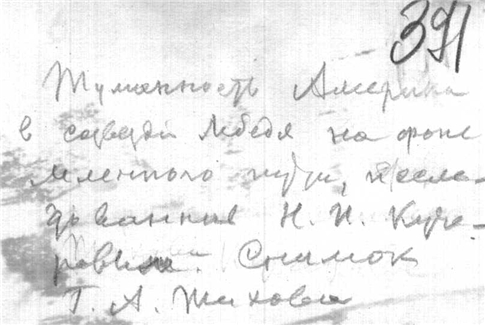 391
Туманность Америка
в созвездии Лебедя на фоне
млечного пути, иссле-
дованная Н. И. Куче-
ровым. Снимок
Г. А. Тихова